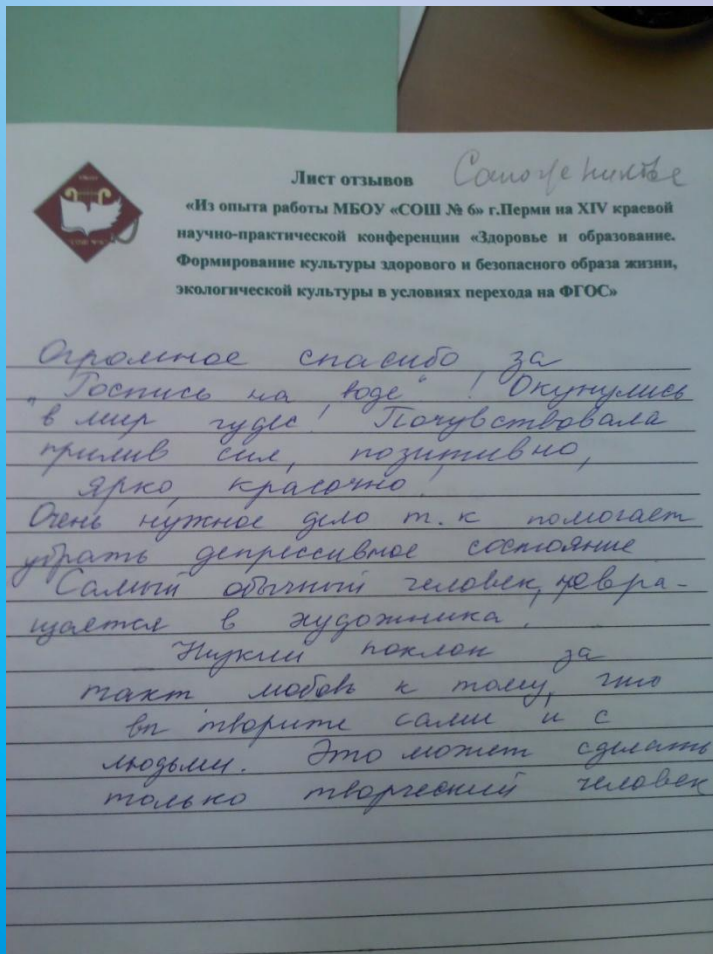 Лист отзывов
«Из опыта работы МБОУ «СОШ № 6» г.Перми на XIV краевой
научно-практической конференции «Здоровье и образование.
Формирование культуры здорового и безопасного образа жизни,
экологической культуры в условиях перехода на ФГОС»
Огромное спасибо за
"Роспись на воде"! Окунулись
в мир чудес! Почувствовала
прилив сил, позитивно,
ярко, красочно!
Очень нужное дело т.к помогает
убрать депрессивное состояние
Самый обычный человек, превра-
щается в художника.
Низкий поклон за
такт любовь к тому, что
вы творите сами и с
людьми. Это может сделать
только творческий человек